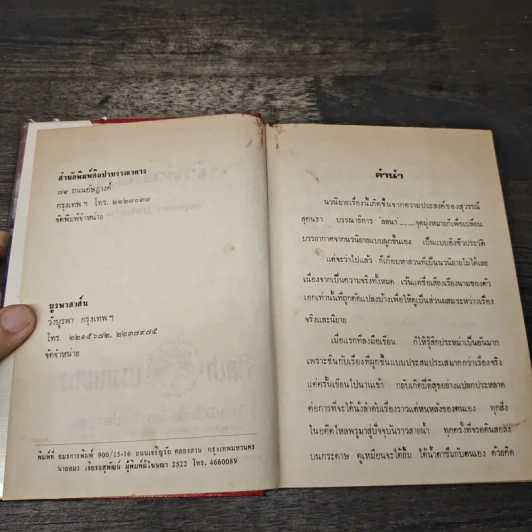 สำนักพิมพ์ศิลปาบรรณาคาร
๓๙ ถนนอัษฎางค์
กรุงเทพ ฯ โทร. ๒๒๒๗๐๓๗
จัดพิมพ์จำหน่าย
บูรพาสาส์น
วังบูรพา กรุงเทพ ฯ
โทร. ๒๒๑๕๖๘๒, ๒๒๓๘๙๘๕
จัดจำหน่าย
พิมพ์ที่ อมรการพิมพ์ 900/15-16 ถนนเจริญรัถ คลองสาน กรุงเทพมหานคร
นายอมร เจียรรสุพัฒน์ ผู้พิมพ์ผู้โฆษณา 2522 โทร. 4660089
คำนำ
นวนิยายเรื่องนี้เกิดขึ้นจากความประสงค์ของสุวรรณี
สุคนธา บรรณาธิการ 'ลลนา'......จุดมุ่งหมายก็เพื่อเปลี่ยน
บรรยากาศจากนวนิยายแบบผูกขึ้นเอง เป็นแบบอิงชีวประวัติ
แต่จะว่าไปแล้ว ก็เกือบหาส่วนที่เป็นนวนิยายไม่ได้เลย
เนื่องจากเป็นความจริงทั้งหมด เว้นแต่ชื่อเสียงเรียงนามของตัว
เอกเท่านั้นที่ถูกดัดแปลงบ้างเพื่อให้ดูเป็นส่วนผสมระหว่างเรื่อง
จริงและนิยาย
เมื่อแรกที่ลงมือเขียน ก็ให้รู้สึกประหม่าเป็นอันมาก
เพราะชินกับเรื่องที่ผูกขึ้นแบบประสมประเสมากกว่าเรื่องจริง
แต่ครั้นเขียนไปนานเข้า กลับเกิดปีติสุขอย่างแปลกประหลาด
ต่อการที่จะได้นั่งลำดับเรื่องราวแต่หนหลังของตนเอง ทุกสิ่ง
ในอดีตไหลพรูมาสู่ปัจจุบันราวสายน้ำ ทุกครั้งที่จรดดินสอลง
บนกระดาษ ดูเหมือนจะได้ยิ้ม ได้น้ำตาซึมกับตนเอง ด้วยคิด